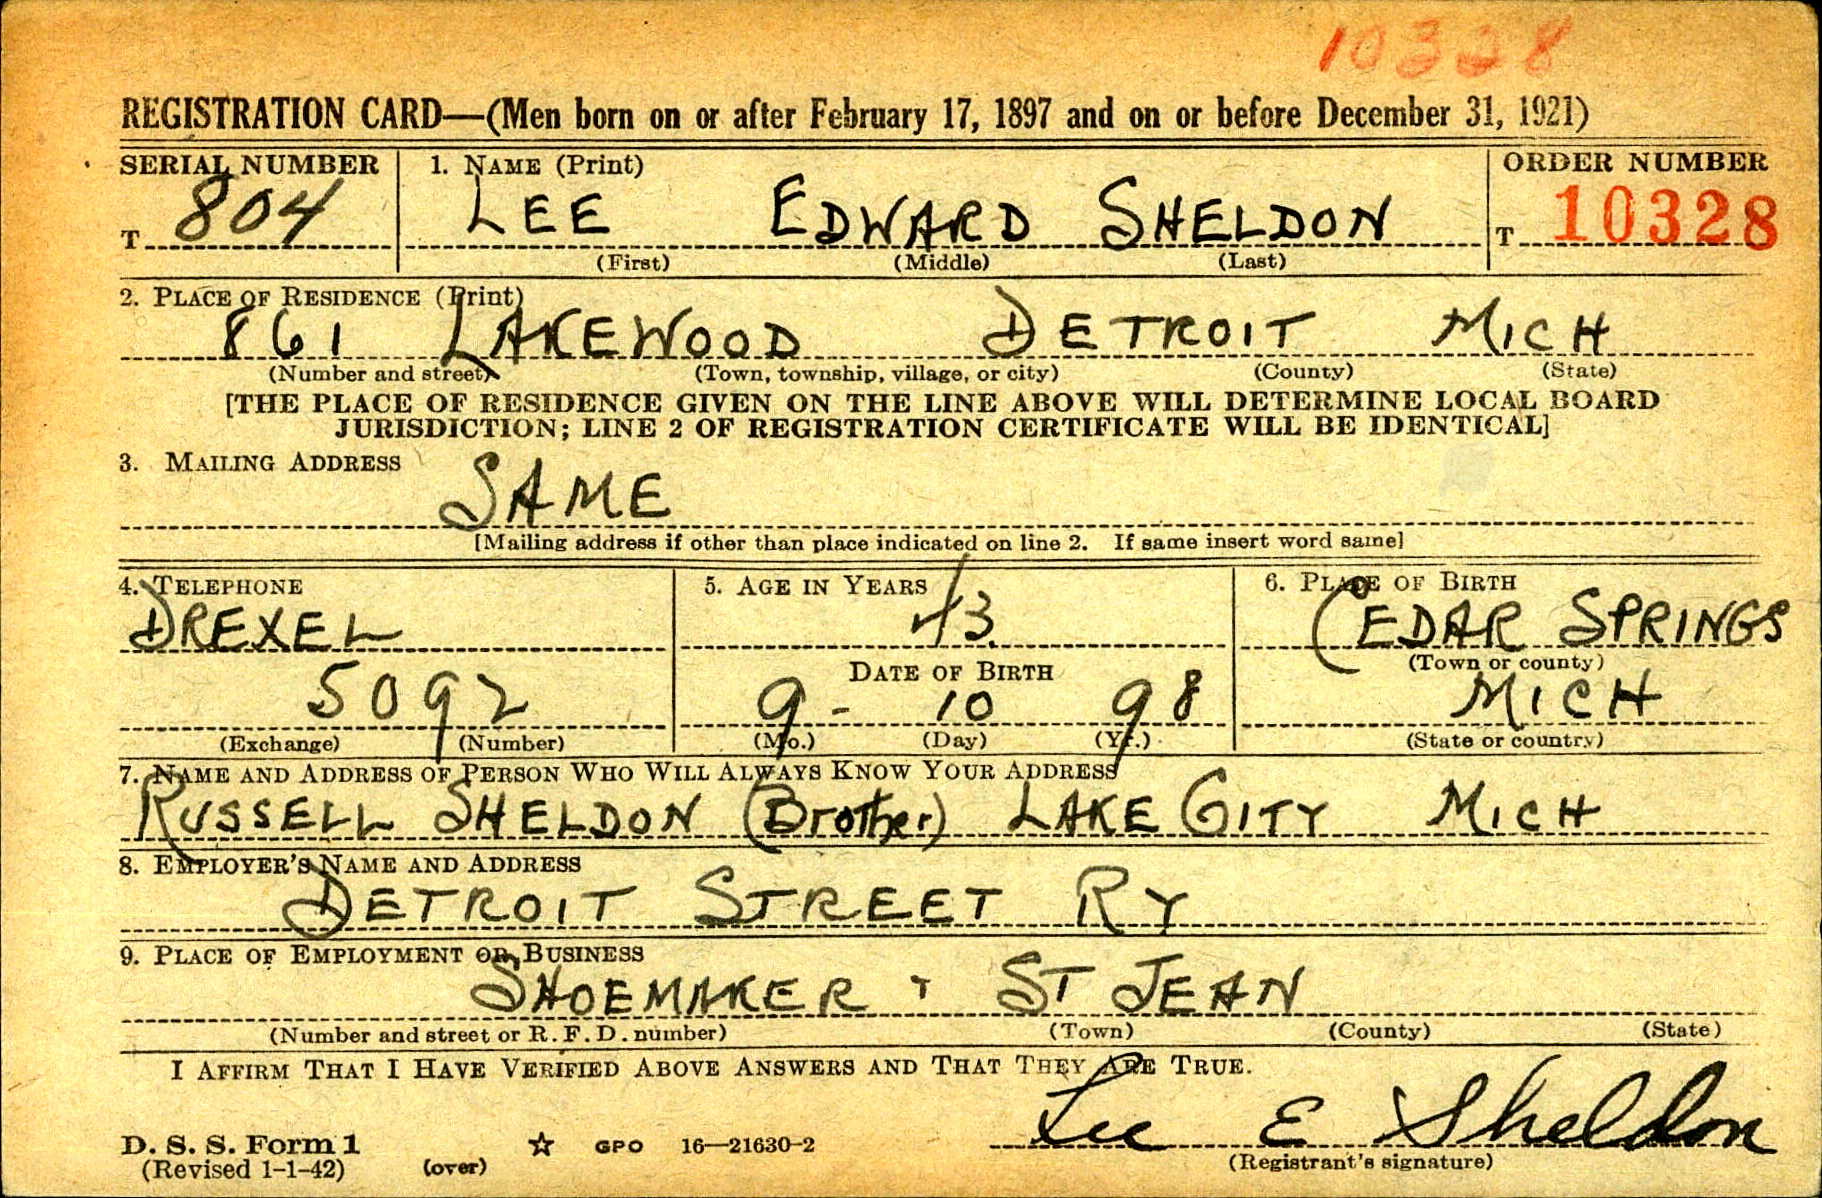 10328
REGISTRATION CARD—(Men born on or after February 17, 1897 and on or before December 31, 1921)
SERIAL NUMBER 1. NAME (Print) ORDER NUMBER
T 804 LEE EDWARD SHELDON T 10328
(First) (Middle) (Last)
2. PLACE OF RESIDENCE (Print)
861 LAKEWOOD DETROIT MICH
(Number and street) (Town, township, village, or city) (County) (State)
[THE PLACE OF RESIDENCE GIVEN ON THE LINE ABOVE WILL DETERMINE LOCAL BOARD
JURISDICTION; LINE 2 OF REGISTRATION CERTIFICATE WILL BE IDENTICAL]
3. MAILING ADDRESS
SAME
[Mailing address if other than place indicated on line 2. If same insert word same]
4. TELEPHONE 5. AGE IN YEARS 6. PLACE OF BIRTH
DREXEL 43 CEDAR SPRINGS
DATE OF BIRTH (Town or county)
5092 9- 10 98 MICH
(Exchange) (Number) (Mo.) (Day) (Yr.) (State or country)
7. NAME AND ADDRESS OF PERSON WHO WILL ALWAYS KNOW YOUR ADDRESS
RUSSELL SHELDON (Brother) LAKE CITY MICH
8. EMPLOYER'S NAME AND ADDRESS
DETROIT STREET RY
9. PLACE OF EMPLOYMENT OR BUSINESS
SHOEMAKER + ST JEAN
(Number and street or R. F. D. number) (Town) (County) (State)
I AFFIRM THAT I HAVE VERIFIED ABOVE ANSWERS AND THAT THEY ARE TRUE.
Lee E Sheldon
D. S. S. Form 1 ☆ GPO 16—21630-2
(Revised 1-1-42) (over) (Registrant's signature)